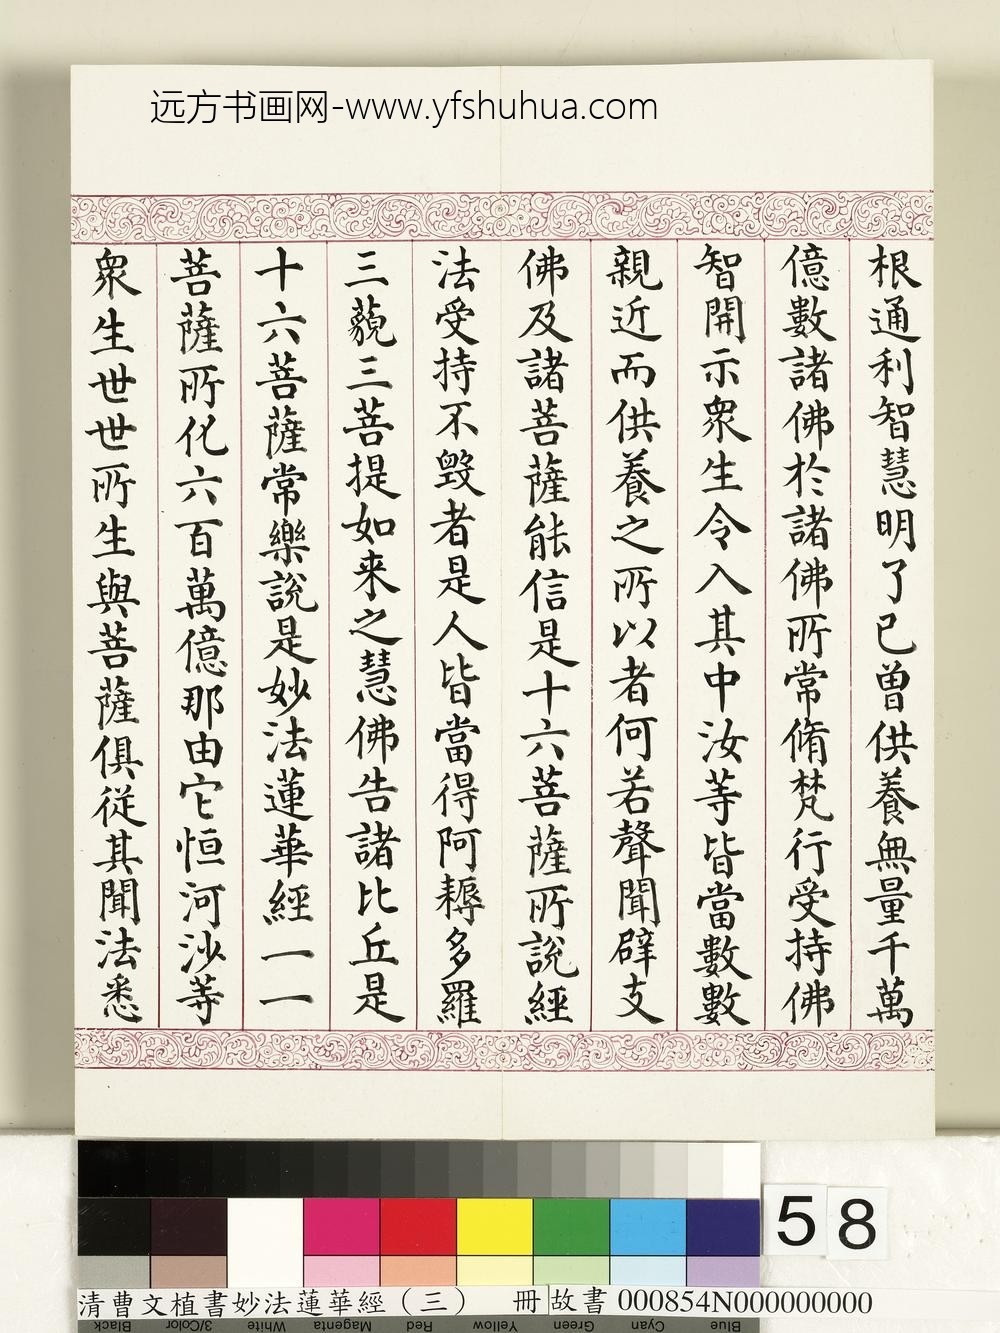 远方书画网-www.yfshuhua.com
根通利智慧明了已曾供養無量千萬
億數諸佛於諸佛所常脩梵行受持佛
智開示衆生令入其中汝等皆當數數
親近而供養之所以者何若聲聞辟支
佛及諸菩薩能信是十六菩薩所說經
法受持不毀者是人皆當得阿耨多羅
三藐三菩提如来之慧佛告諸比丘是
十六菩薩常樂說是妙法蓮華經一一
菩薩所化六百萬億那由它恒河沙等
衆生世世所生與菩薩俱從其聞法悉
58
清曹文植書妙法蓮華經(三) 冊 故書 000854N000000000
Black 3/Color White Magenta Red Yellow Green Cyan Blue